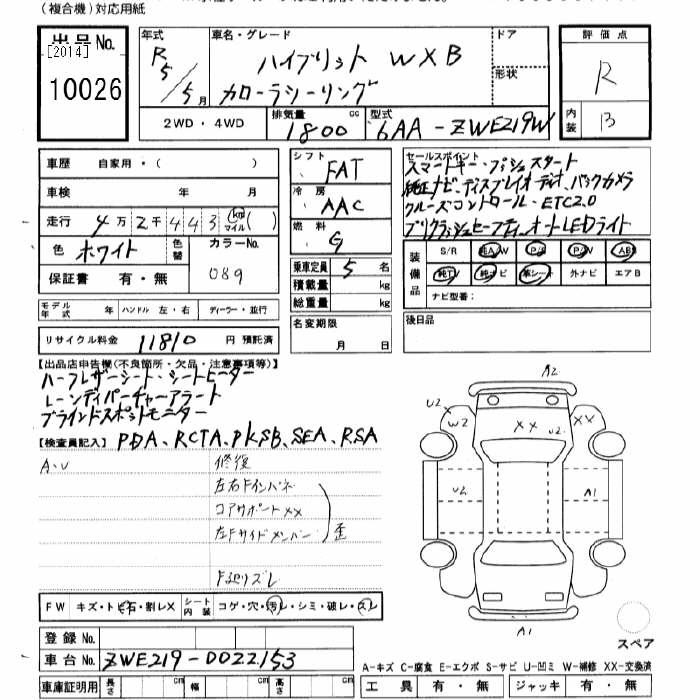 (複合機)対応用紙
出品No.
[2014]
10026
年式
R
5/5月
車名・グレード
ハイブリット WXB
カローラツーリング
ドア
形状
評価点
R
内装
B
2WD・4WD
排気量
1800
cc
型式
6AA-ZWE219W
車歴 自家用・( )
車検 年 月
走行 4万2千443 km マイル( )
色 ホワイト
色替
カラーNo.
089
保証書 有・無
シフト
FAT
冷房
AAC
燃料
G
乗車定員 5名
積載量 kg
総重量 kg
セールスポイント
スマートキー・プッシュスタート
純正ナビ・ディスプレイオーディオ、バックカメラ
クルーズコントロール・ETC2.0
プリクラッシュセーフティ、オートLEDライト
装備品
S/R 純A/W P/S P/W AB
純TV 純ナビ 革シート 外ナビ エアB
ナビ型番:
モデル年式 年 ハンドル 左・右 ディーラー・並行
名変期限
月 日
後日品
リサイクル料金 11810 円 預託済
【出品店申告欄(不良箇所・欠品・注意事項等)】
ハーフレザーシート・シートヒーター
レーンディパーチャーアラート
ブラインドスポットモニター
【検査員記入】 PDA、RCTA、PKSB、SEA、RSA
A・U
修復
左右Fインパネ
コアサポートXX
左Fサイドメンバー
歪
F廻りズレ
A2
U2
W2
XX
U2
XX
U2
A1
A1
スペア
FW キズ・トビ石・割レX
シート内装 コゲ・穴・汚レ・シミ・破レ・スレ
登録No.
車台No. ZWE219-0022153
車庫証明用 長さ cm 幅 cm 高さ cm
A-キズ C-腐食 E-エクボ S-サビ U-凹ミ W-補修 XX-交換済
工具 有・無 ジャッキ 有・無